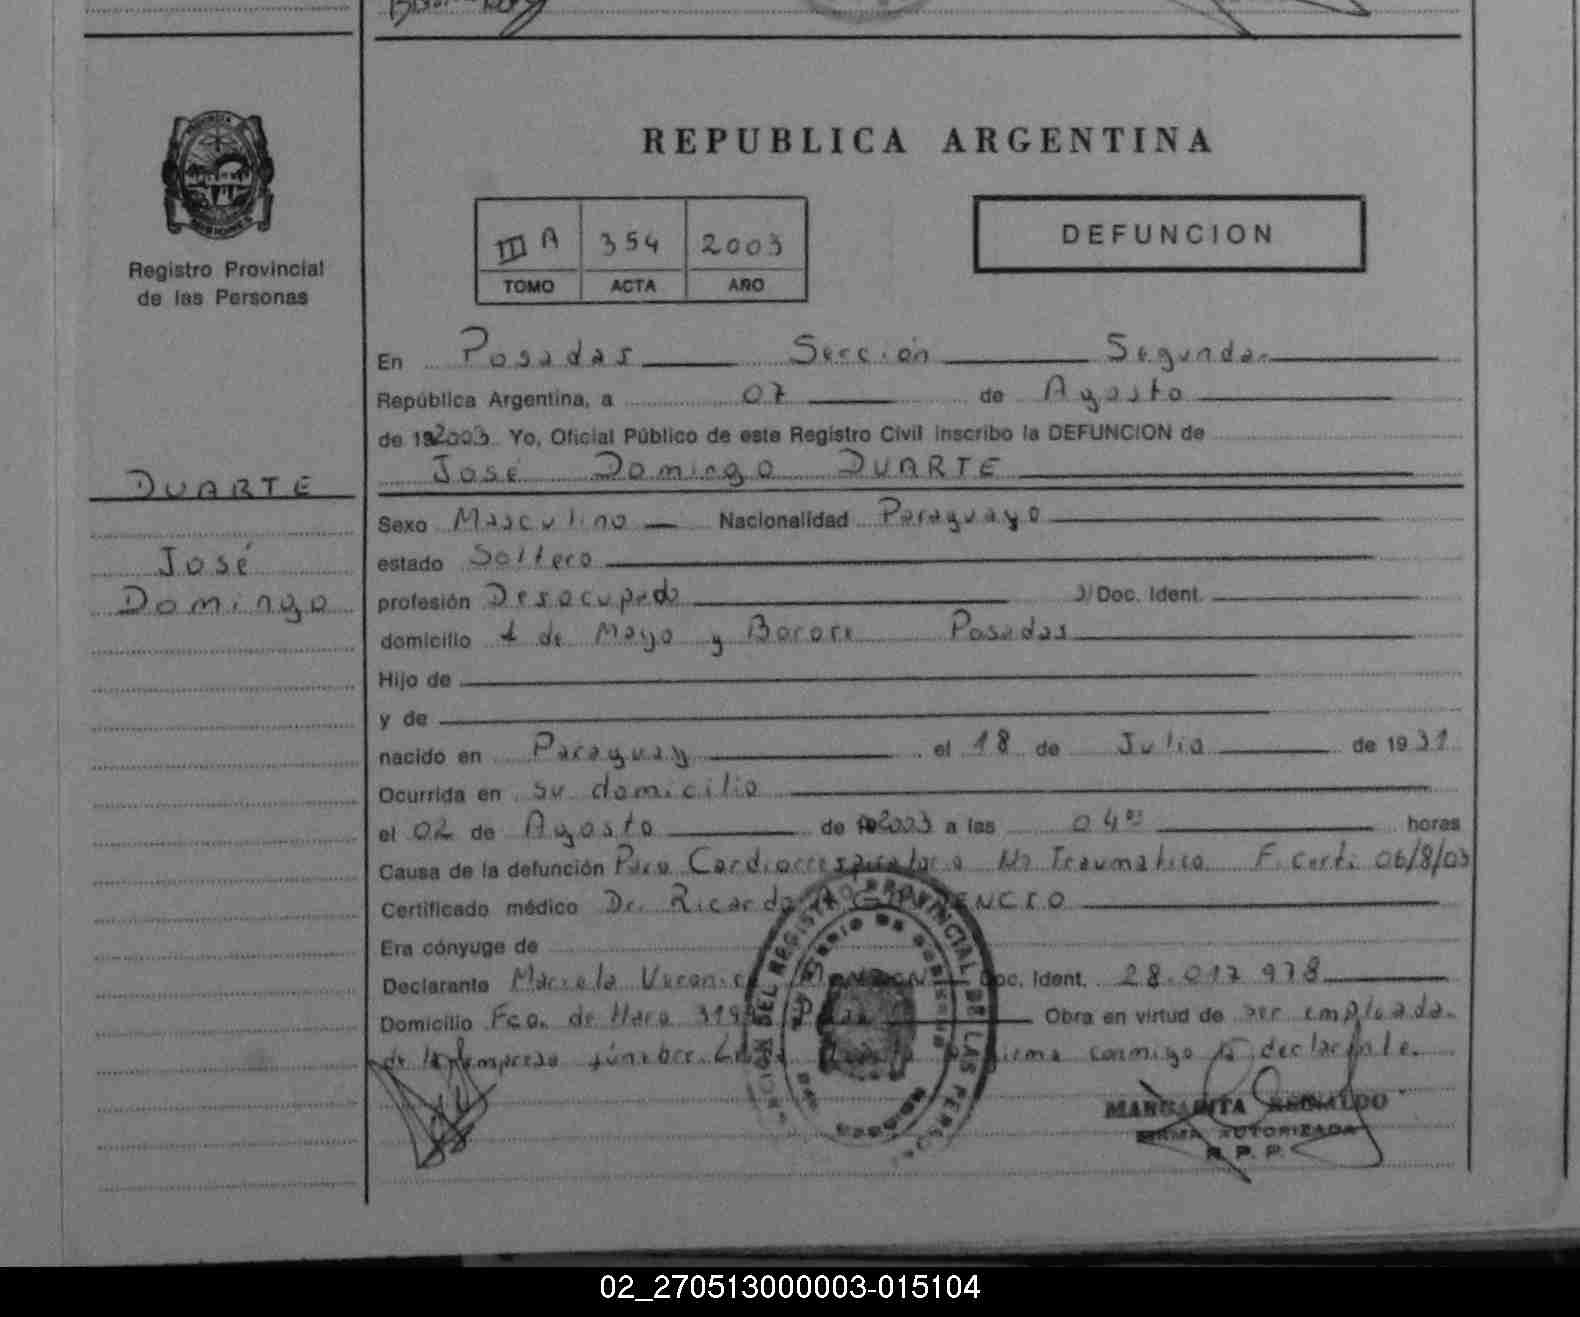 REPUBLICA ARGENTINA
III A 354 2003
TOMO ACTA AÑO
DEFUNCION
Registro Provincial
de las Personas
DUARTE
José
Domingo
En Posadas Sección Segunda
República Argentina, a 07 de Agosto
de 192003 Yo, Oficial Público de este Registro Civil inscribo la DEFUNCION de
José Domingo DUARTE
Sexo Masculino Nacionalidad Paraguayo
estado Soltero
profesión Desocupado Doc. Ident.
domicilio 1 de Mayo y Borore Posadas
Hijo de
y de
nacido en Paraguay el 18 de Julio de 1931
Ocurrida en su domicilio
el 02 de Agosto de 2003 a las 04 horas
Causa de la defunción Paro Cardiorrespiratorio No Traumatico F. Cert. 06/8/03
Certificado médico Dr. Ricardo
Era cónyuge de
Declarante Mariela Veronica Doc. Ident. 28.017.978
Domicilio Fco. de Haro Obra en virtud de ser empleada
de la empresa fúnebre firma conmigo la declarante.
MARGARITA REINALDO
FIRMA AUTORIZADA
R. P. P.
02_270513000003-015104